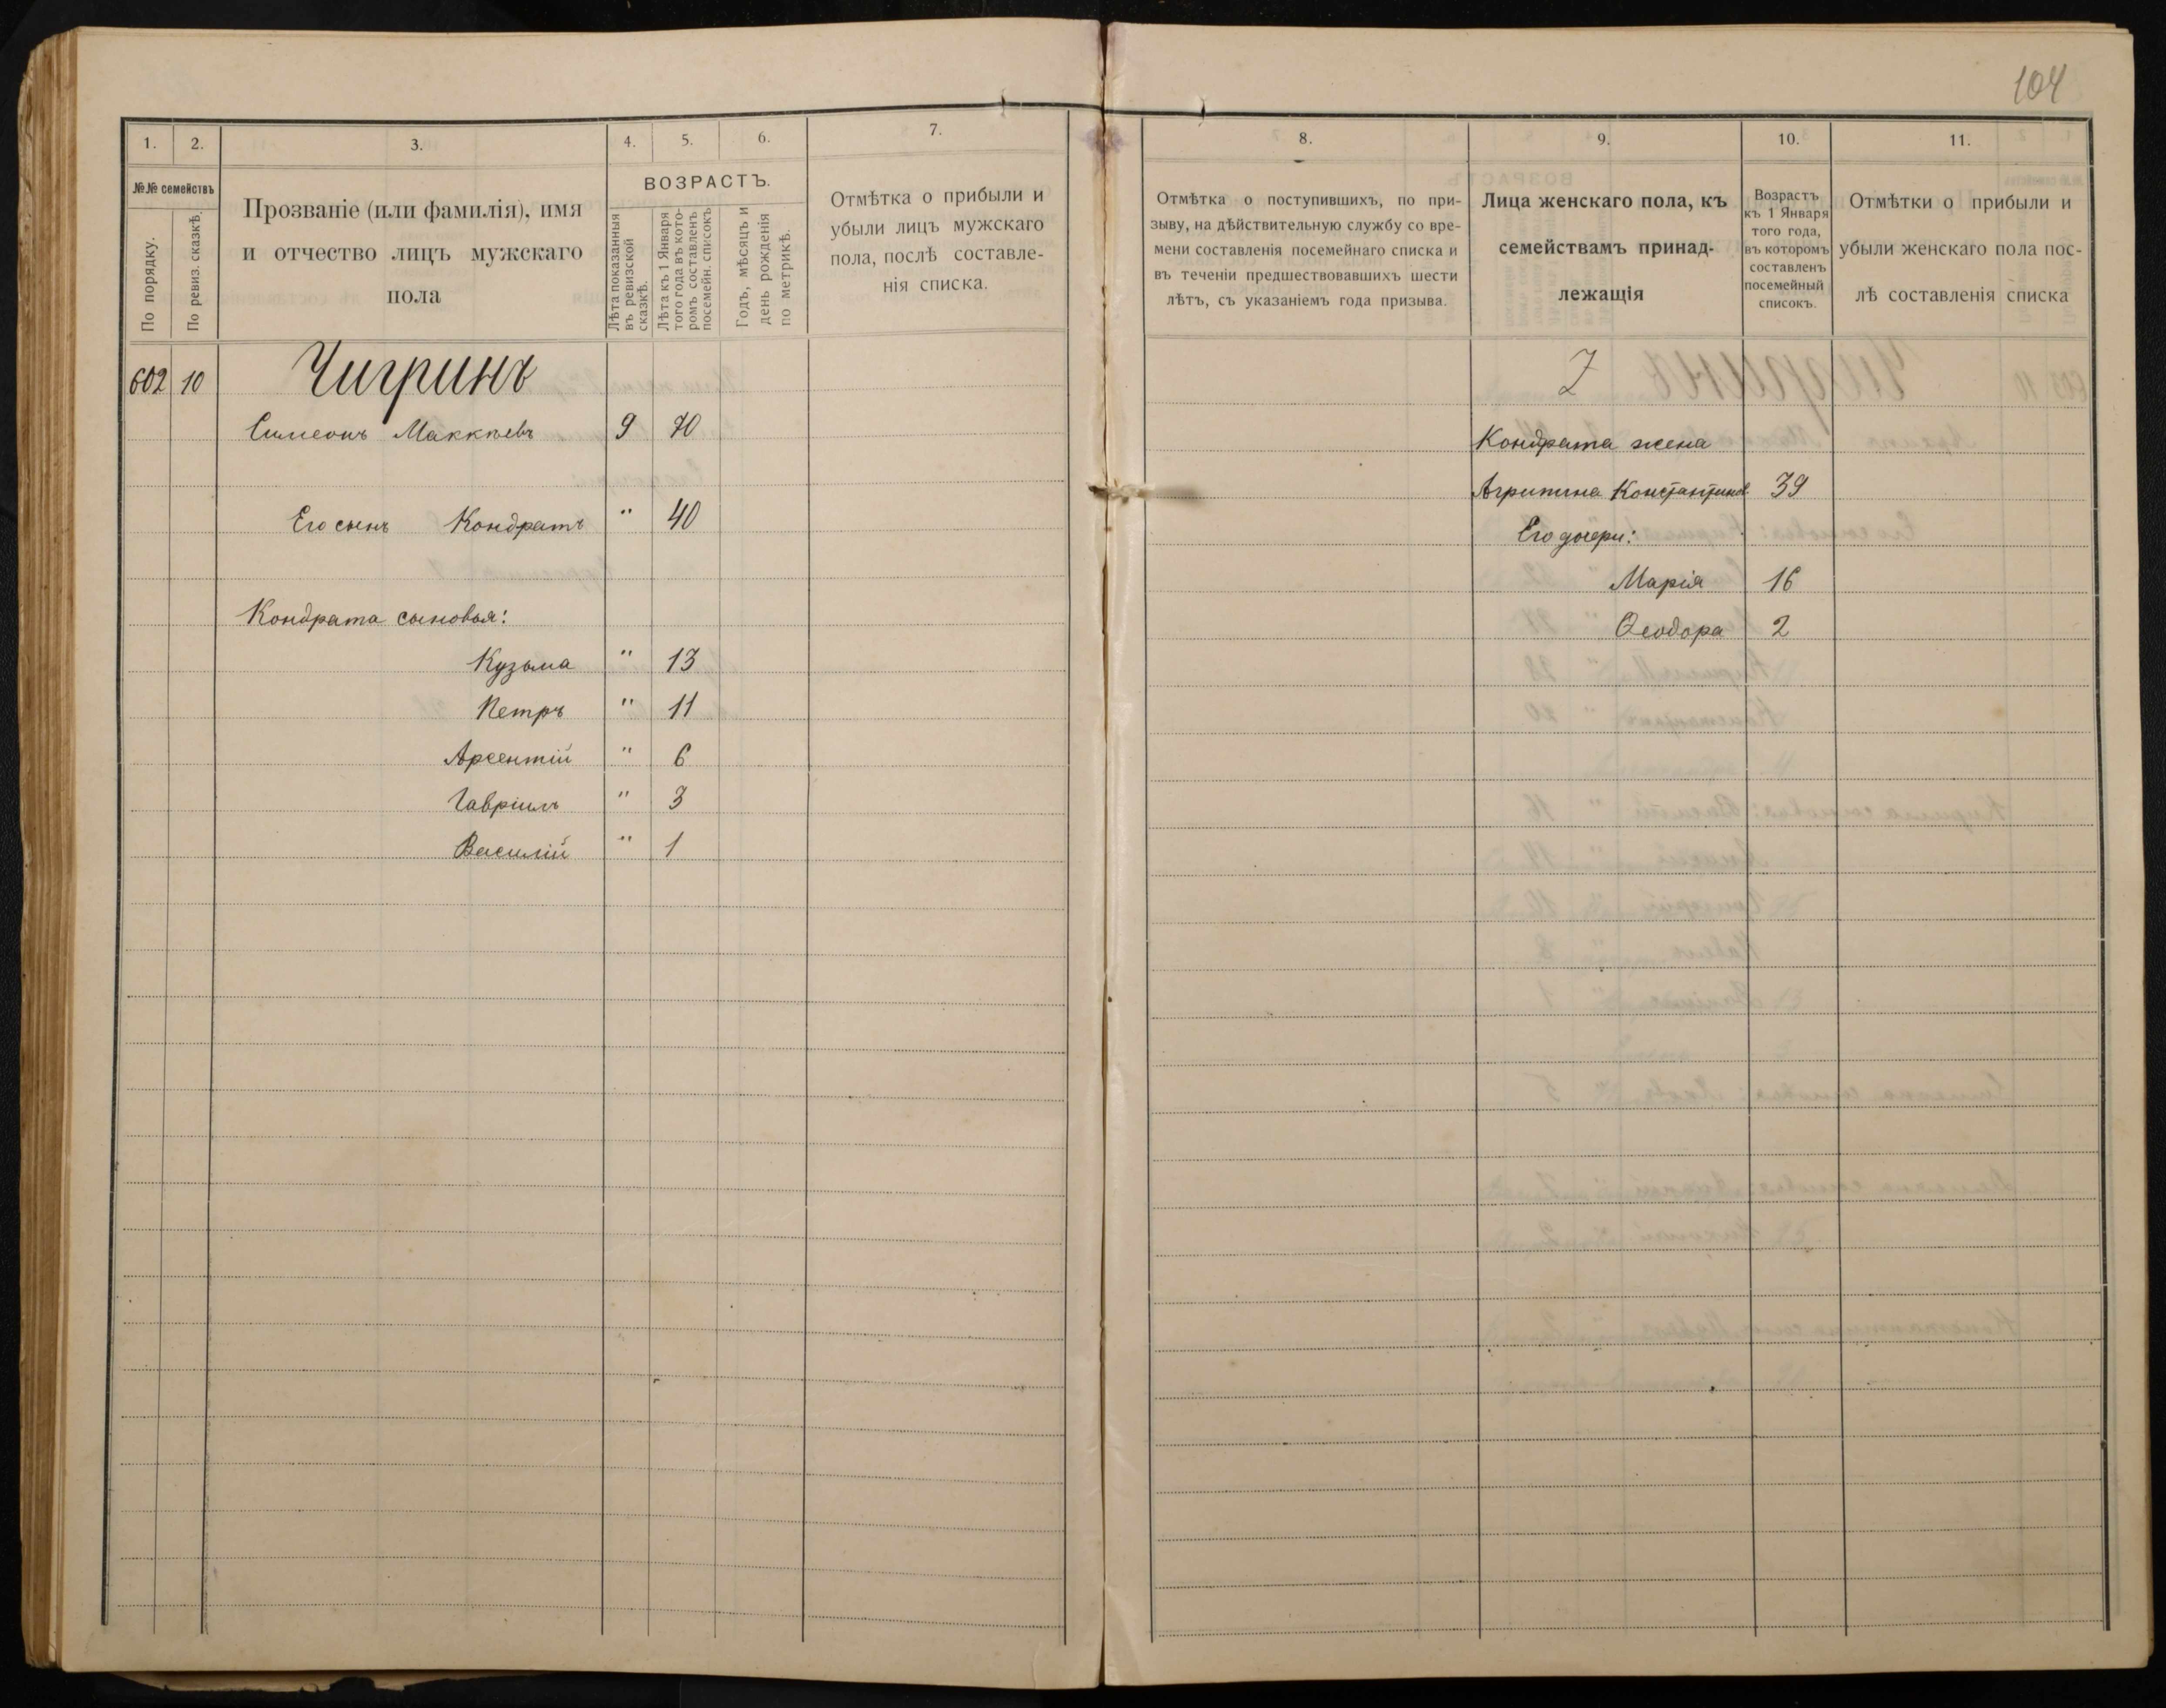 104
1. 2. 3. 4. 5. 6. 7.
№№ семействъ
По порядку.
По ревиз. сказкѣ.
Прозваніе (или фамилія), имя
и отчество лицъ мужскаго
пола
ВОЗРАСТЪ.
Лѣта показанныя
въ ревизской
сказкѣ.
Лѣта къ 1 Января
того года въ кото-
ромъ составленъ
посемейн. списокъ
Годъ, мѣсяцъ и
день рожденія
по метрикѣ.
Отмѣтка о прибыли и
убыли лицъ мужскаго
пола, послѣ составле-
нія списка.
602 10 Чигринъ
Симеонъ Маккѣевъ 9 70
Его сынъ Кондратъ " 40
Кондрата сыновья:
Кузьма " 13
Петръ " 11
Арсентій " 6
Гавріилъ " 3
Василій " 1
8. 9. 10. 11.
Отмѣтка о поступившихъ, по при-
зыву, на дѣйствительную службу со вре-
мени составленія посемейнаго списка и
въ теченіи предшествовавшихъ шести
лѣтъ, съ указаніемъ года призыва.
Лица женскаго пола, къ
семействамъ принад-
лежащія
Возрастъ
къ 1 Января
того года,
въ которомъ
составленъ
посемейный
списокъ.
Отмѣтки о прибыли и
убыли женскаго пола пос-
лѣ составленія списка
Кондрата жена
Агрипина Константинов. 39
Его дочери:
Марія 16
Ѳеодора 2